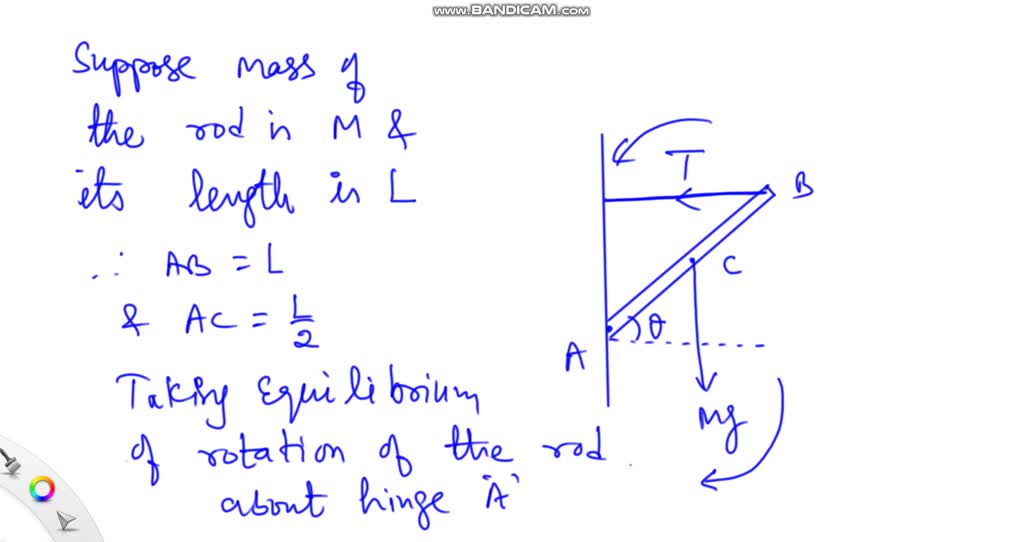 www.BANDICAM.com
Suppose mass of
the rod is M &
its length is L
∴ AB = L
& AC = L/2
Taking Equilibrium
of rotation of the rod
about hinge 'A'
T
B
C
θ
A
Mg